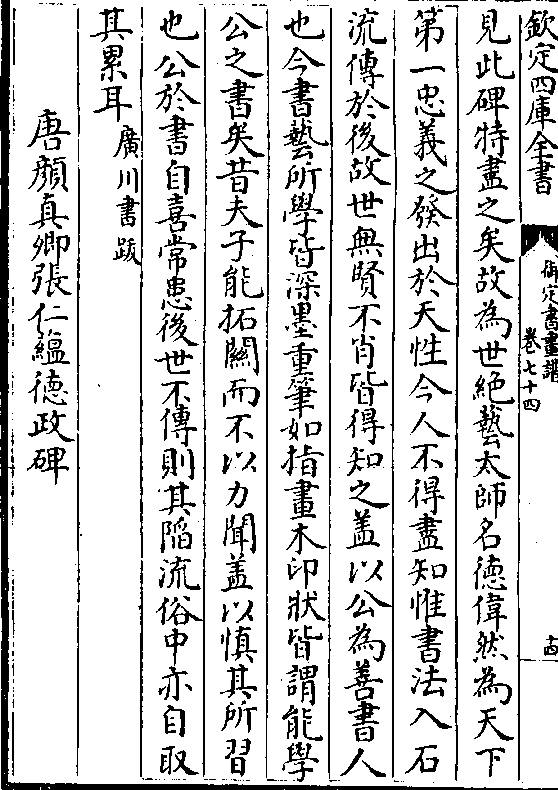 欽定四庫全書
御定書畫譜
卷七十四
十四
見此碑特盡之矣故為世絶藝太師名德偉然為天下
第一忠義之發出於天性今人不得盡知惟書法入石
流傳於後故世無賢不肖皆得知之盖以公為善書人
也今書藝所學皆深墨重筆如指畫木印狀皆謂能學
公之書矣昔夫子能拓關而不以力聞盖以慎其所習
也公於書自喜常患後世不傳則其陷流俗中亦自取
其累耳
廣川書跋
唐顔真卿張仁蘊德政碑